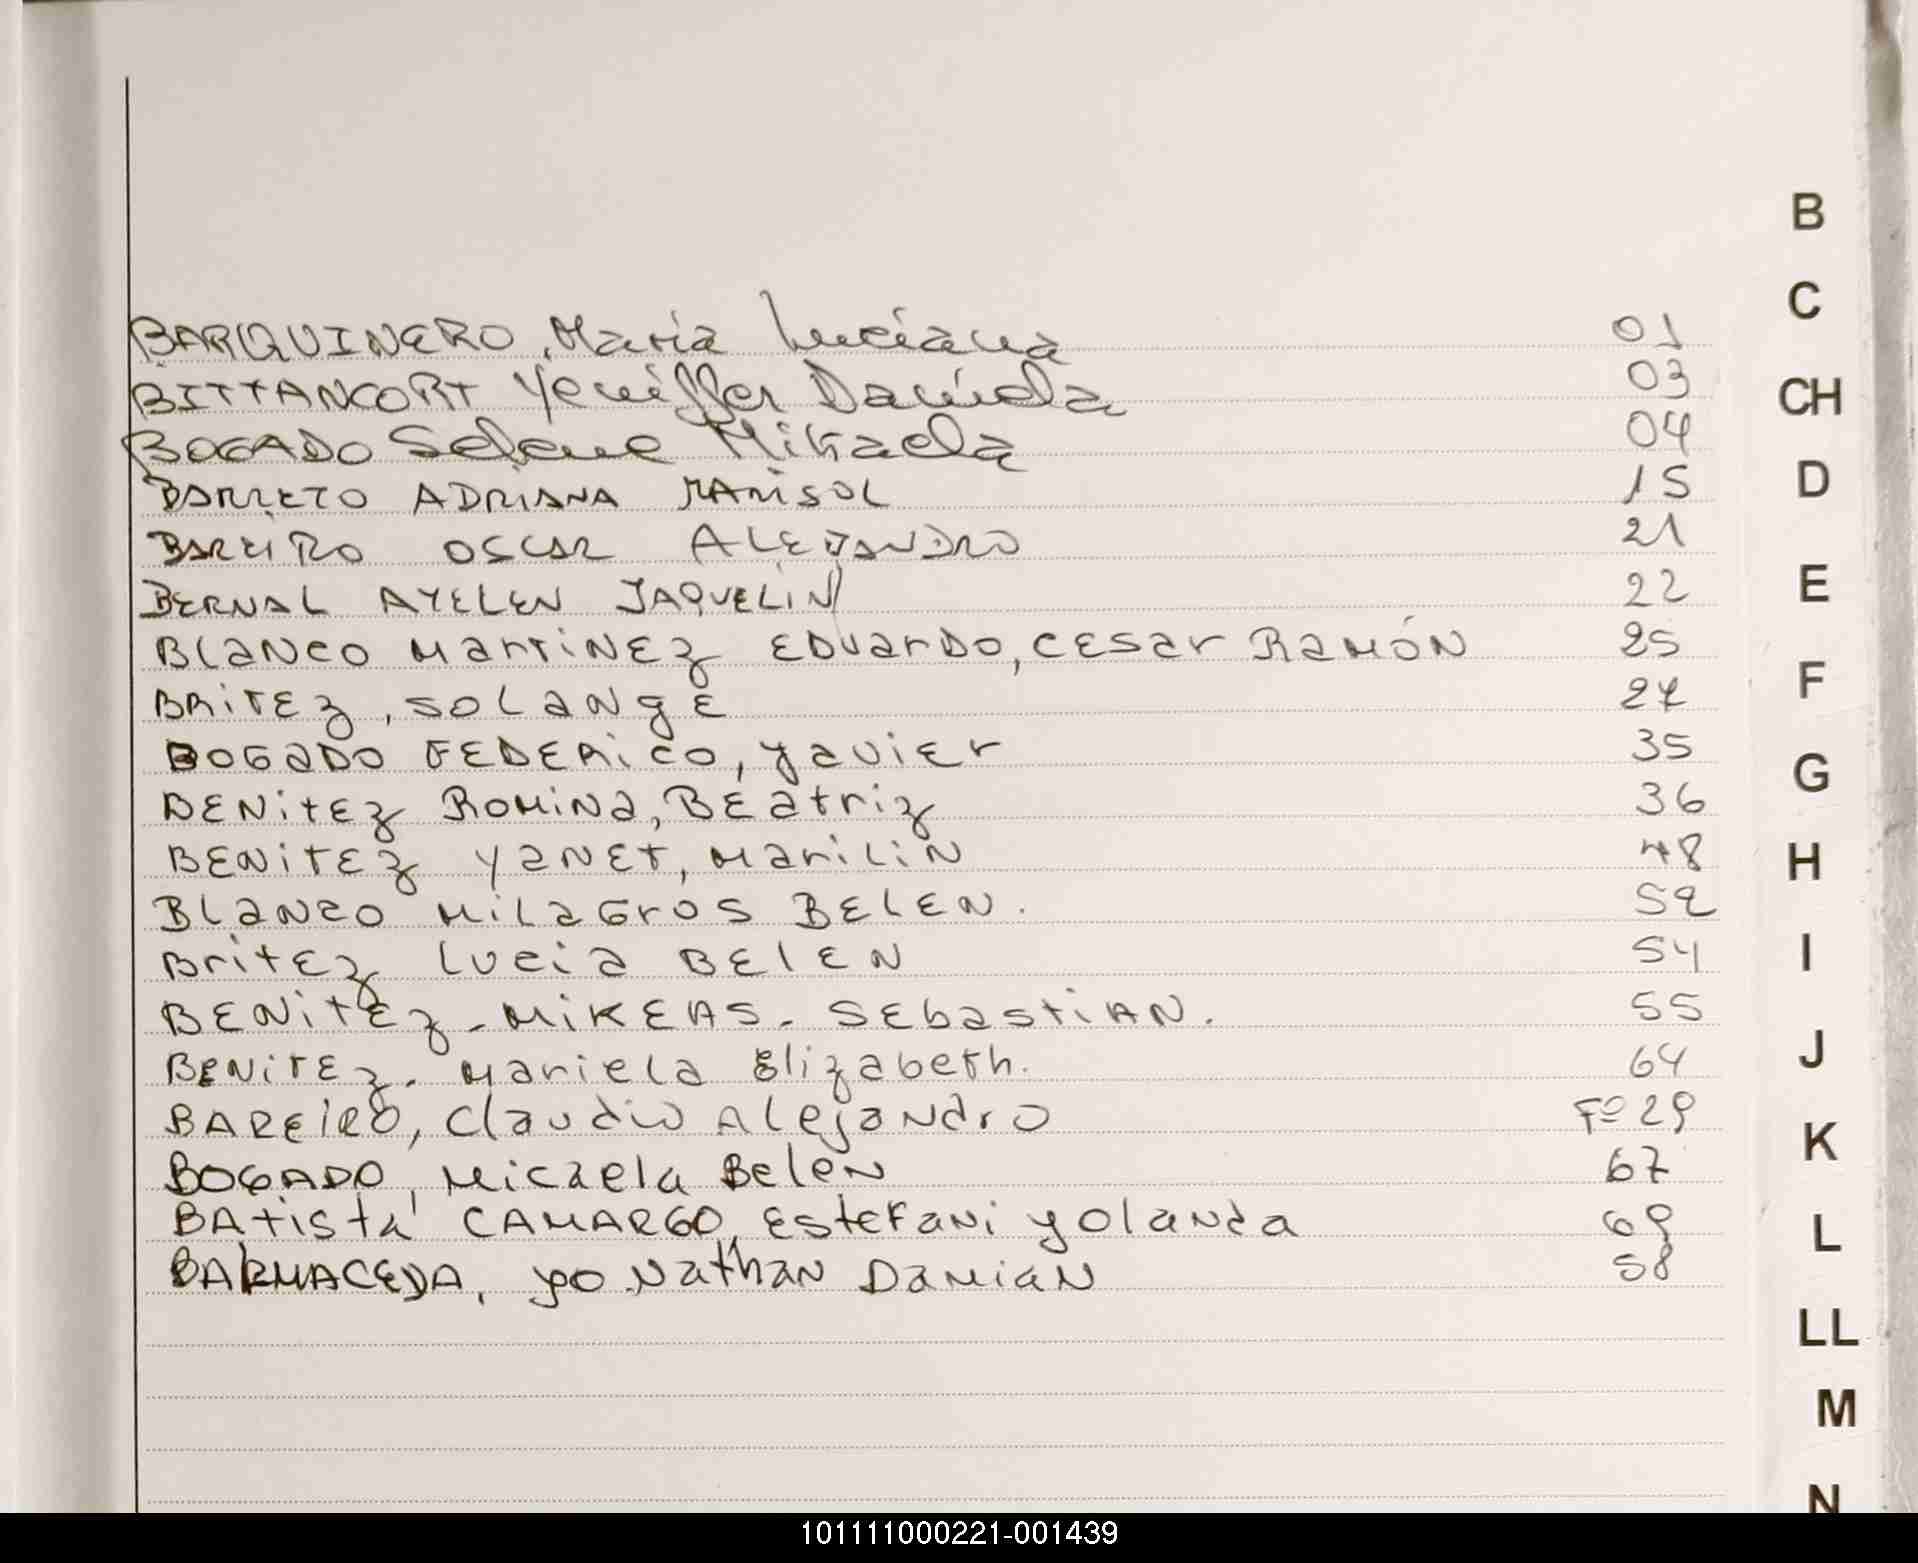 BARQUINERO, María Luciana 01
BITTANCORT Yeniffer Daniela 03
BOGADO Selene Mikaela 04
BARRETO ADRIANA MARISOL 15
BAREIRO OSCAR ALEJANDRO 21
BERNAL AYELEN JAQUELIN 22
BLANCO MARTINEZ EDUARDO, CESAR RAMÓN 25
BRITEZ, SOLANGE 27
BOGADO FEDERICO, YAVIER 35
BENITEZ ROMINA, BEATRIZ 36
BENITEZ YANET, MARILIN 48
BLANCO MILAGROS BELEN. 52
BRITEZ LUCIA BELEN 54
BENITEZ - MIKEAS - SEBASTIAN. 55
BENITEZ, Mariela Elizabeth. 64
BAREIRO, Claudio Alejandro Fº 29
BOGADO, Micaela Belen 67
BATista CAMARGO, Estefani yolanda 69
BARMACEDA, yo Nathan Damian 58
B
C
CH
D
E
F
G
H
I
J
K
L
LL
M
N
101111000221-001439